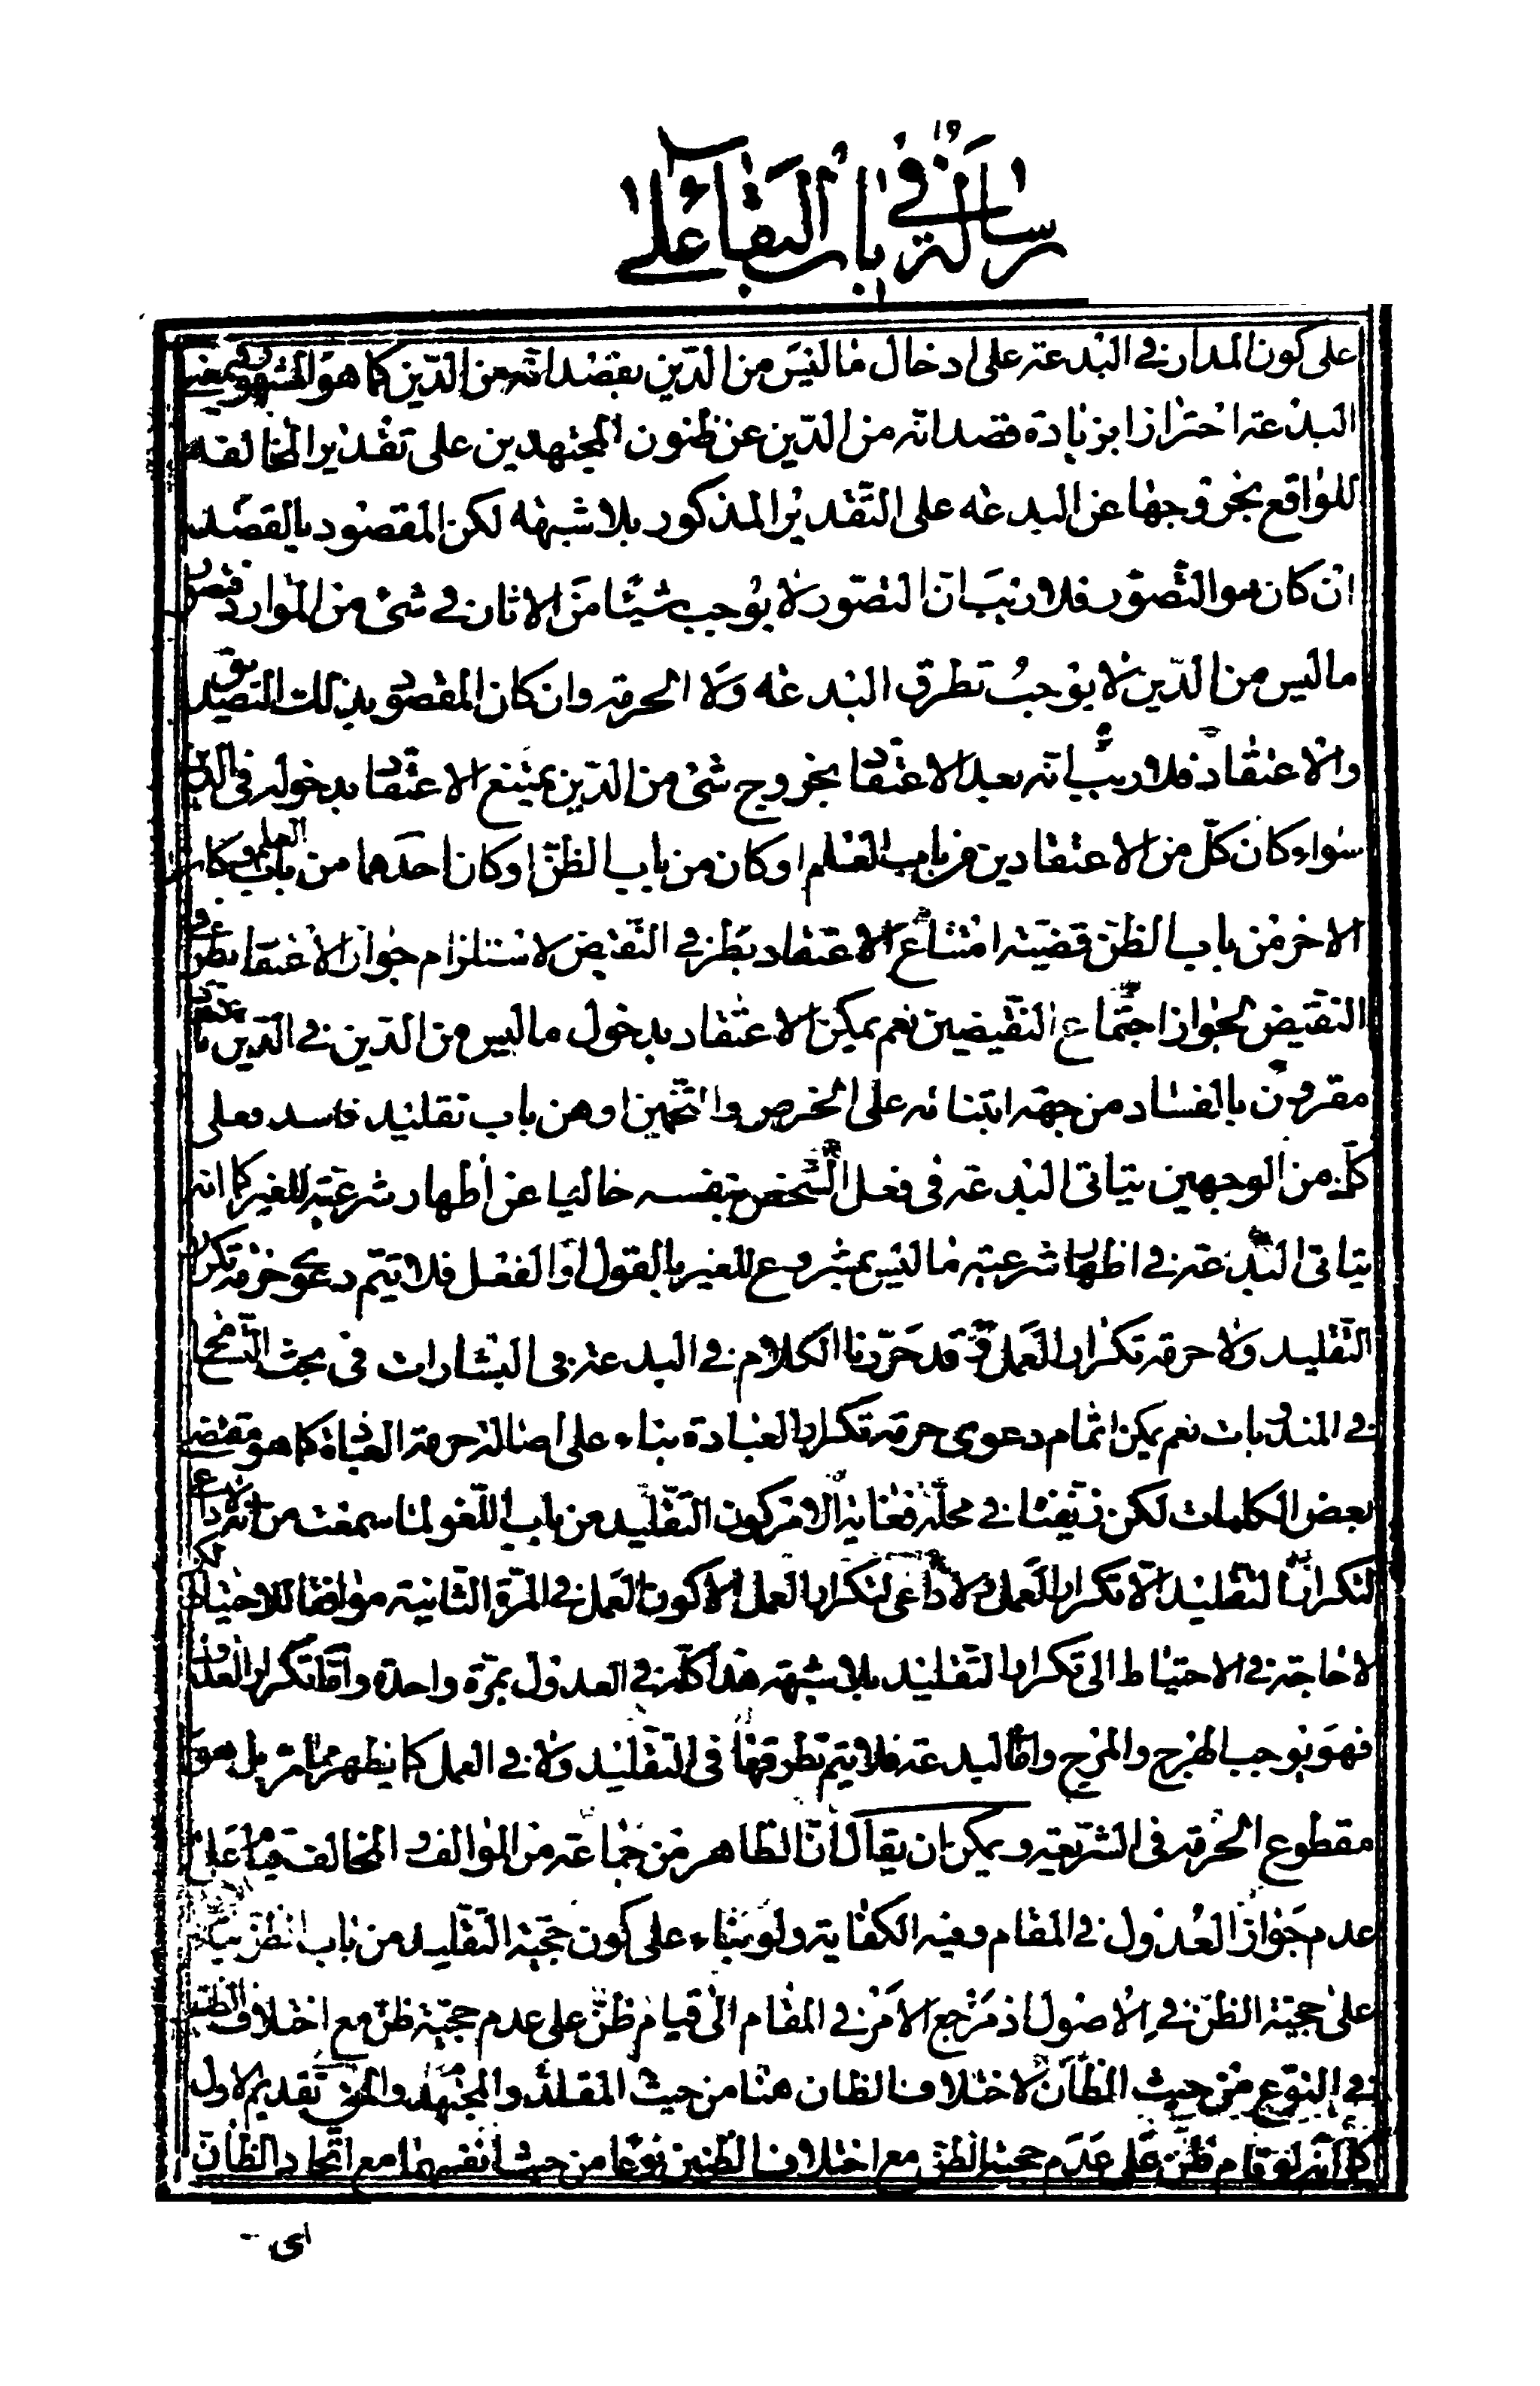 رسالة في باب البقاء على
على كون المدار في البدعة على ادخال ما ليس من الدّين بقصد انّه من الدّين كما هو المشهور في معنى
البدعة احترازا بزيادة قصد انّه من الدّين عن ظنون المجتهدين على تقدير المخالفة
للواقع بخروجها عن البدعة على التّقدير المذكور بلا شبهة لكن المقصود بالقصد
ان كان هو التّصوّر فلا ريب ان التصوّر لا يوجب شيئا من الاثار في شئ من الموارد فتصور
ما ليس من الدّين لا يوجب تطرق البدعة ولا الحرمة وان كان المقصود بذلك التصديق
والاعتقاد فلا ريب انّه بعد الاعتقاد بخروج شئ من الدّين يمتنع الاعتقاد بدخوله في الدين
سواء كان كلّ من الاعتقادين من باب العلم او كان من باب الظنّ او كان احدهما من باب العلم وكان
الاخر من باب الظنّ قضيّة امتناع الاعتقاد بطرفي النّقيض لاستلزام جواز الاعتقاد بطرفي
النقيض لجواز اجتماع النقيضين نعم يمكن الاعتقاد بدخول ما ليس من الدّين في الدّين باعتقاد
مقرون بالفساد من جهة ابتنائه على الخرص والتّخمين او من باب تقليد فاسد وعلى
كلّ من الوجهين يتاتى البدعة في فعل الشّخص بنفسه خاليا عن اظهار شرعيّته للغير كما انه
يتاتى البدعة في اظهار شرعيّة ما ليس بمشروع للغير بالقول او الفعل فلا يتم دعوى حرمة تكرار
التّقليد ولا حرمة تكرار العمل وقد حرّرنا الكلام في البدعة في البشارات في بحث التّسامح
في المندوبات نعم يمكن اتمام دعوى حرمة تكرار العبادة بناء على اصالة حرمة العبادة كما هو مقتضى
بعض الكلمات لكن زيّفنا في محلّه فغاية الامر كون التّقليد من باب اللّغو لما سمعت من انّه لا داعي
لتكرار التقليد الا تكرار العمل ولا داعي لتكرار العمل الا كون العمل في المرّة الثّانية موافقا للاحتياط لكن
لا حاجة في الاحتياط الى تكرار التّقليد بلا شبهة هذا كلّه في العدول بمرّة واحدة وامّا تكرار العدول
فهو يوجب الهرج والمرج وامّا البدعة فلا يتم تطرّقها في التّقليد ولا في العمل كما يظهر ممّا مرّ بل هو
مقطوع الحرمة في الشريعة ويمكن ان يقال انّ الظاهر من جماعة من الموالف والمخالف قيام
عدم جواز العدول في المقام وفيه الكفاية ولو بناء على كون حجّية التّقليد من باب الظنّ
على حجّية الظنّ في الاصول اذ مرجع الامر في المقام الى قيام ظنّ على عدم حجّية ظنّ مع اختلاف الظن
في النوع من حيث الظانّ لاختلاف الظان هنا من حيث المقلد والمجتهد والحق تقديم الاول
كما انّه لو قام ظنّ على عدم حجية الظنّ مع اختلاف الظنين نوعا من حيث انفسهما مع اتّحاد الظانّ
اى